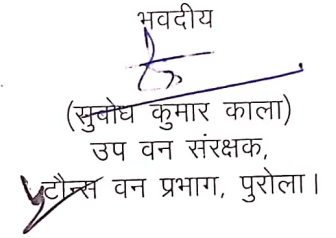 भवदीय
(सुबोध कुमार काला)
उप वन संरक्षक,
टौन्स वन प्रभाग, पुरोला।